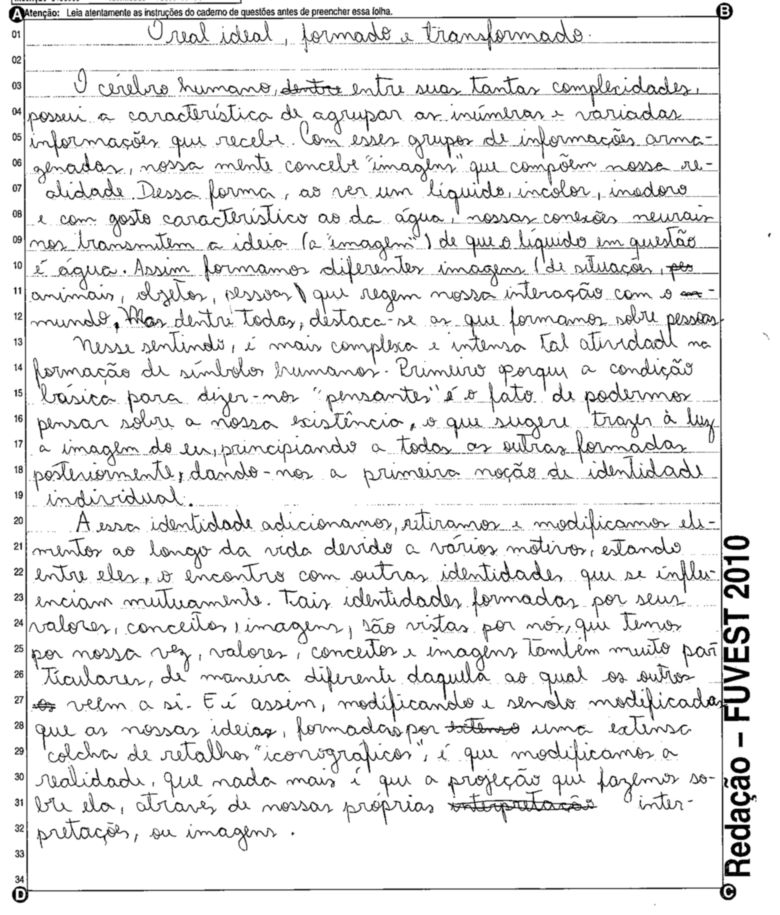 Atenção: Leia atentamente as instruções do caderno de questões antes de preencher essa folha.
A
B
01 O real ideal, formado e transformado.
02
03 O cérebro humano, dentre entre suas tantas complexidades,
04 possui a característica de agrupar as inúmeras e variadas
05 informações que recebe. Com esses grupos de informações arma-
06 genadas, nossa mente concebe "imagens" que compõem nossa re-
07 alidade. Dessa forma, ao ver um líquido, incolor, inodoro
08 e com gosto característico ao da água, nossas conexões neurais
09 nos transmitem a ideia (a "imagem") de que o líquido em questão
10 é água. Assim formamos diferentes imagens (de situações, pes
11 animais, objetos, pessoas) que regem nossa interação com o
12 mundo. Mas dentre todas, destaca-se as que formamos sobre pessoas.
13 Nesse sentindo, é mais complexa e intensa tal atividade na
14 formação de símbolos humanos. Primeiro porque a condição
15 básica para dizer-nos "pensantes" é o fato de podermos
16 pensar sobre a nossa existência, o que sugere trazer à luz
17 a imagem do eu, principiando a todas as outras formadas
18 posteriormente, dando-nos a primeira noção de identidade
19 individual.
20 A essa identidade adicionamos, retiramos e modificamos ele-
21 mentos ao longo da vida devido a vários motivos, estando
22 entre eles, o encontro com outras identidades que se influ-
23 enciam mutuamente. Tais identidades formadas por seus
24 valores, conceitos, imagens, são vistas por nós, que temos
25 por nossa vez, valores, conceitos e imagens também muito par
26 ticulares, de maneira diferente daquela ao qual os outros
27 os veem a si. E é assim, modificando e sendo modificadas
28 que as nossas ideias, formadas por extenso uma extensa
29 colcha de retalhos "iconográficos", é que modificamos a
30 realidade, que nada mais é que a projeção que fazemos so-
31 bre ela, através de nossas próprias interpretação inter-
32 pretações, ou imagens.
33
34
D
C
Redação – FUVEST 2010